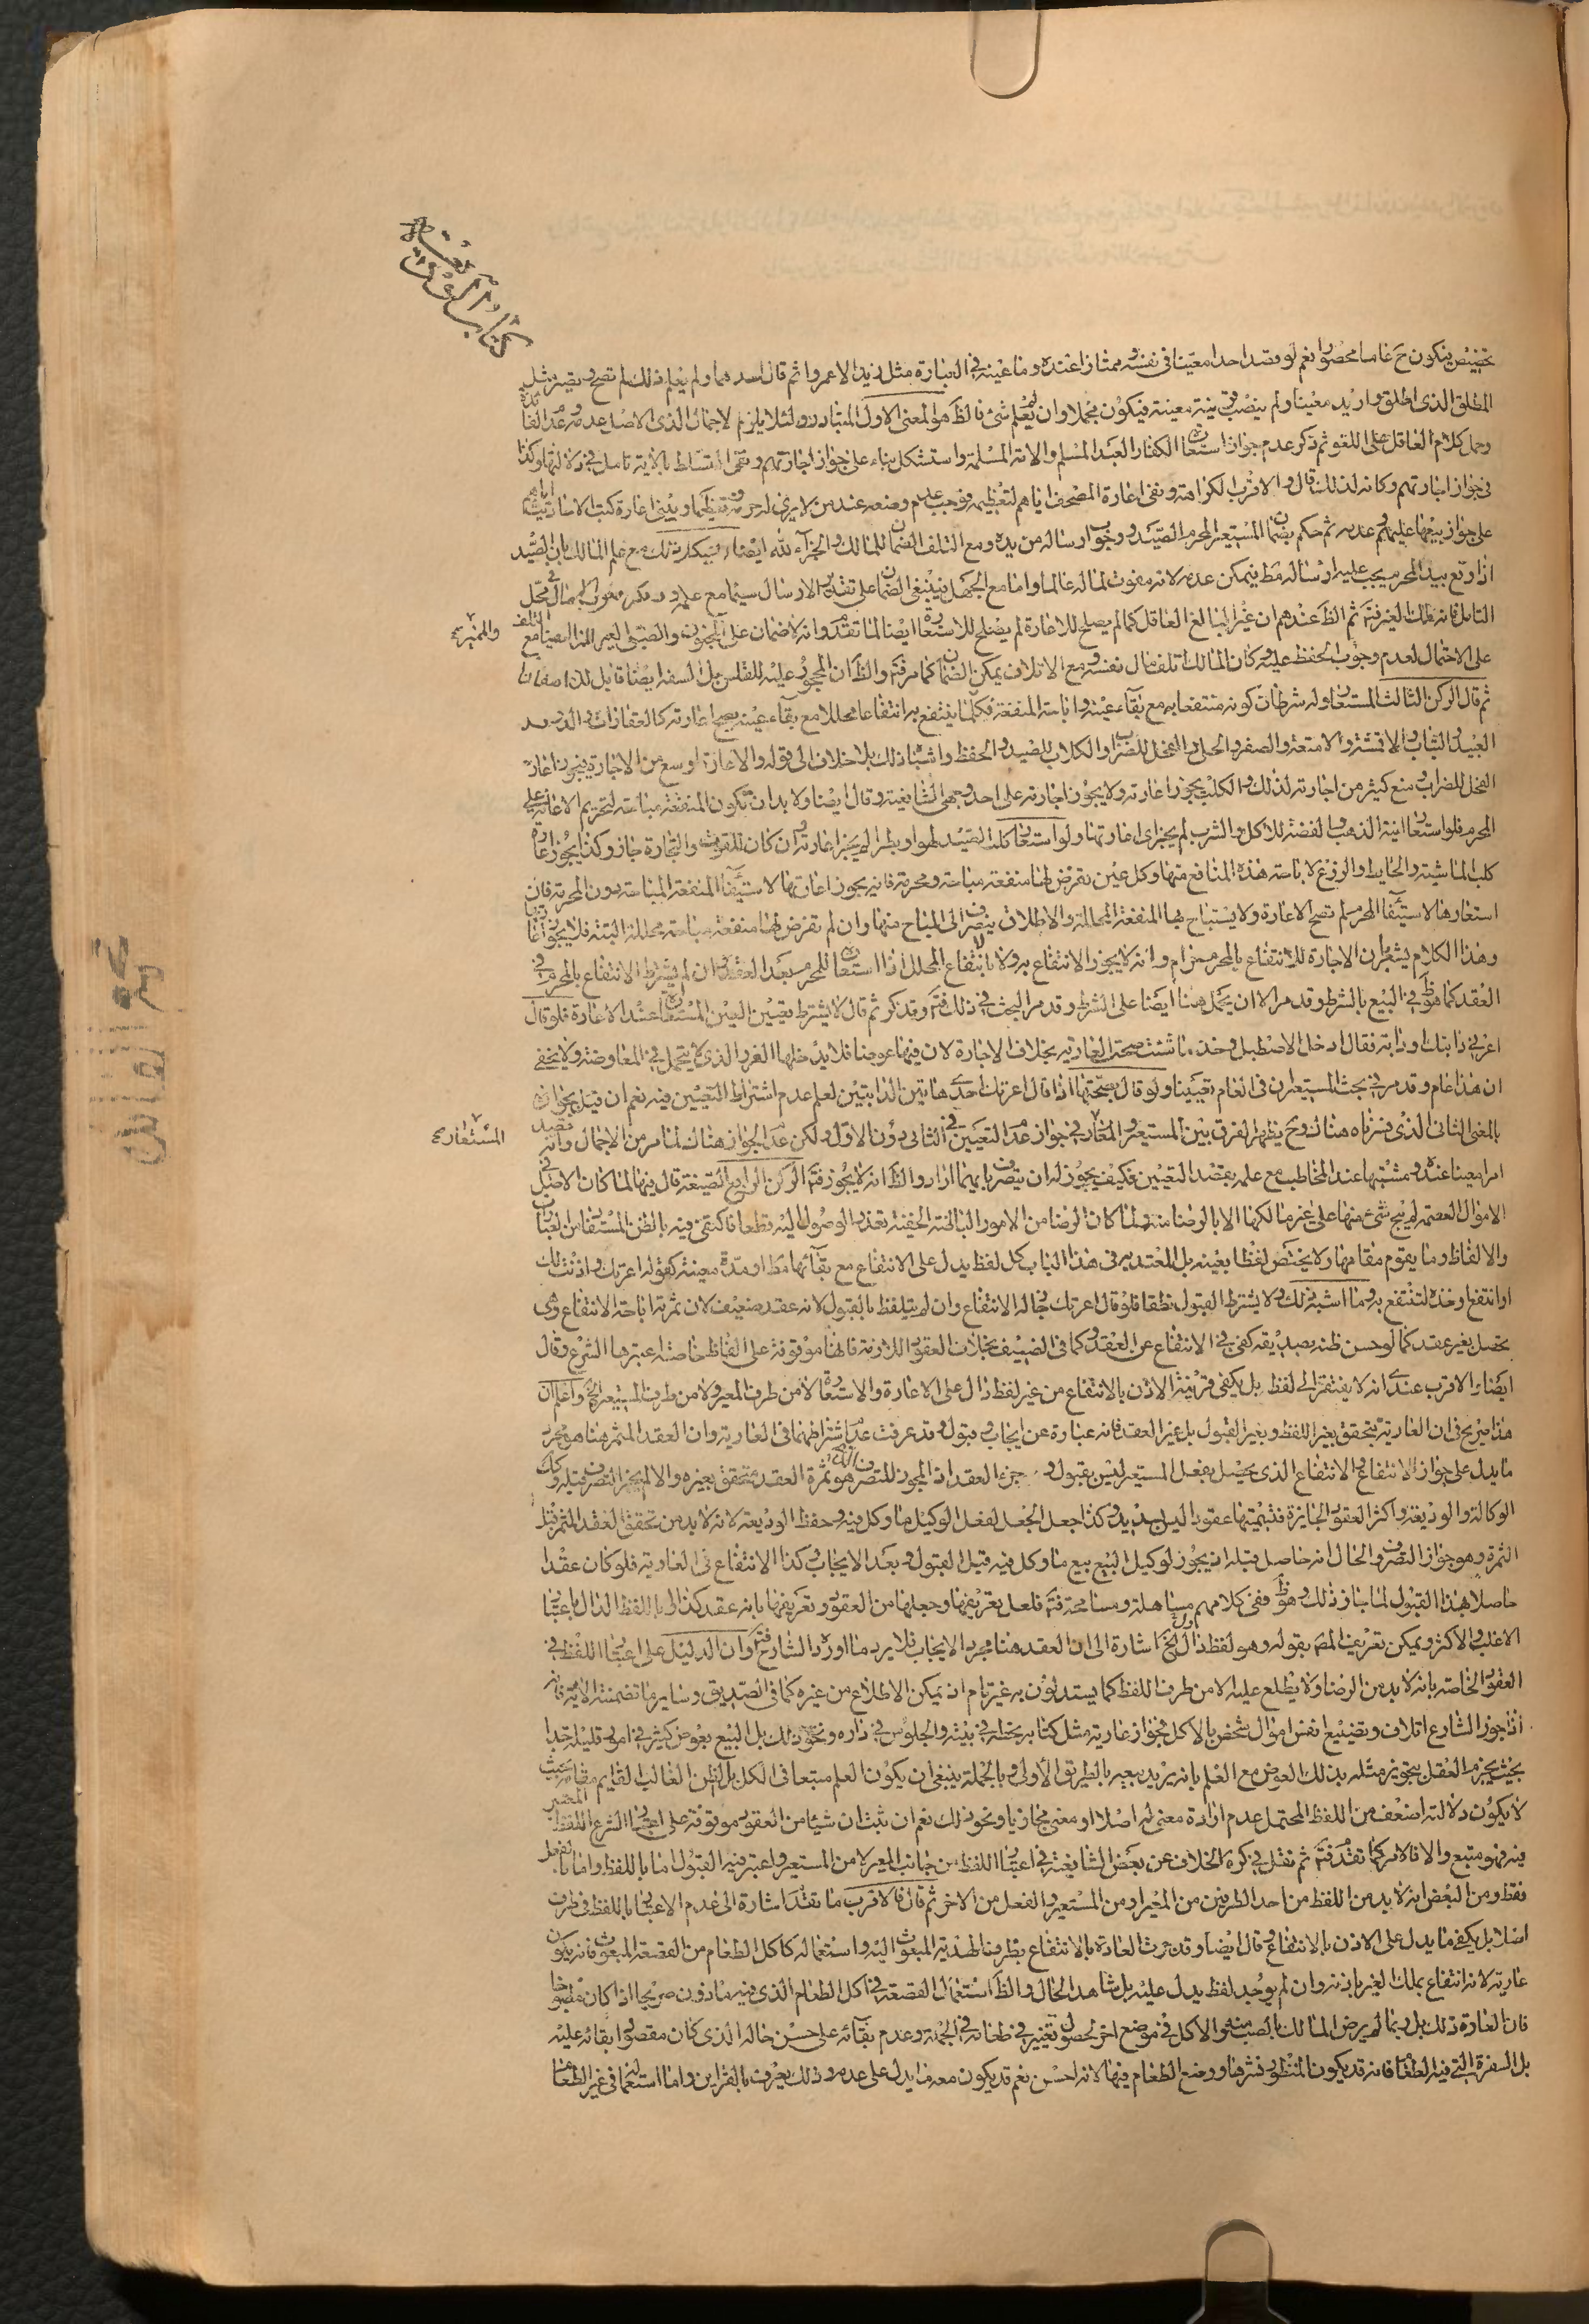 تخصيص فيكون ح عاما محصورا نعم لو قصد احدا معينا في نفسه وممتازا عنده وما عينه في العبارة مثل زيد الا عمروا ثم قال احدهما ولم يعلم ذلك لم تصح
المطلق الذى اطلق واريد معينا ولم ينصب قرينة معينة فيكون مجملا وان لم يعلم شئ فالظ هو المعنى الاول المتبادر ولئلا يلزم الاجمال الذى الاصل عدمه
وحمل كلام العاقل على اللغو ثم ذكر عدم جواز استعارة الكفار العبد المسلم والامة المسلمة واستشكل بناء على جواز اجارتهم ونفى التسلط بالاية تامل في دلالتها وكذا
في جواز اجارتهم وكانه لذلك قال والاقرب الكراهة ونفى اعارة المصحف اياهم لتعظيمه فوجب عدم وضعه عند من لا يرى له حرمة
على جواز بيعها عليهم وعدمه ثم حكم بضمان المستعير المحرم الصيد ووجوب ارساله من يده ومع التلف الضمان للمالك والجزآء لله ايضا وفيه ذلك مع علم المالك بان الصيد
اذا وقع بيد المحرم يجب عليه ارساله مط فيمكن عدمه لانه مفوت لماله عالما واما مع الجهل فينبغى الضمان على تقدير الارسال سيما مع علمه
التامل فانه ملك الغير فتم ثم الظ عندهم ان غير البالغ العاقل كما لم يصلح للاعارة لم يصلح للاستعارة ايضا لما تقدم وانه لا ضمان على المجنون والصبى الغير المميز ايضا مع التلف
والمميز
على الاحتمال لعدم وجوب الحفظ عليه وكان المالك اتلف مال نفسه ومع الاتلاف يمكن الضمان كما مر فتم والظ ان المحجور عليه للفلس بل السفه ايضا قابل لذلك
ثم قال الركن الثالث المستعار وله شرطان كونه منتفعا به مع بقآء عينه واباحة المنفعة فكلما ينتفع به انتفاعا محللا مع بقآء عينه يصح اعارته كالعقارات والدواب
العبيد والثياب والاقمشة والامتعة والصفر والحلى والفحل للضراب والكلاب للصيد والحفظ واشباه ذلك بلا خلاف الى قوله والاعارة اوسع من الاجارة فيجوز اعارة
الفحل للضراب ومنع كثير من اجارته لذلك والكلب يجوز اعارته ولا يجوز اجارته على احد وجهى الشافعية وقال ايضا ولا بد ان تكون المنفعة مباحة لتحريم الاعانة على
المحرم فلو استعار آنية الذهب والفضة للاكل والشرب لم يجز اى اعارتها ولو استعار كلب الصيد لهوا وبطرا لم يجز اعارته وان كان للقوت والتجارة جاز وكذا يجوز اعارة
كلب الماشية والحايط والزرع لاباحة هذه المنافع منها وكل عين تفرض لها منفعة مباحة ومحرمة فانه يجوز اعارتها لاستيفاء المنفعة المباحة دون المحرمة فان
استعارها لاستيفآء المحرم لم تصح الاعارة ولا يستباح بها المنفعة المحللة والاطلاق ينصرف الى المباح منها وان لم تفرض لها منفعة مباحة محللة البتة فلا يجوز اعارتها
وهذا الكلام يشعر بان الاجارة للانتفاع بالمحرم حرام وانه لا يجوز الانتفاع به ولا بانتفاع المحلل اذا استعار للمحرم بعد العقد وان لم يشترط الانتفاع بالمحرم في
العقد كما هو ظ في البيع بالشرط وقد مر الا ان يحمل هنا ايضا على الشرط وقد مر البحث في ذلك فتم وقد ذكر ثم قال لا يشترط تعيين العين المستعارة عند الاعارة فلو قال
اعرنى دابتك او دابة فقال ادخل الاصطبل وخذ ما شئت صحت العارية بخلاف الاجارة لان فيها عوضا فلا يدخلها الغرر الذى لا يتحمل في المعاوضة ولا يخفى
ان هذا عام وقد مر في بحث المستعير ان في العام تعيينا ولو قال بصحتها اذا قال اعرتك احدى هاتين الدابتين لعلم عدم اشتراط التعيين فيه نعم ان قيل بجوازه
بالمعنى الثانى الذى فسرناه هناك وح يظهر الفرق بين المستعير والمعار في جواز عدم التعيين في الثانى دون الاول ولكن عدم الجواز هناك لما مر من الاجمال وانه قصد
المستعار
امرا معينا عنده ومشتبها عند المخاطب مع علمه بقصد التعيين فكيف يجوز له ان يتصرف بايهما اراد والظ انه لا يجوز فتم الركن الرابع الصيغة قال فيها لما كان الاصل في
الاموال العصمة لم يبح شئ منها على غير مالكها الا بالرضا منه ولما كان الرضا من الامور الباطنة الخفية تعذر الوصول اليه قطعا فاكتفى فيه بالظن المستفاد من العبارات
والالفاظ وما يقوم مقامها ولا يختص لفظا بعينه بل المعتد به في هذا الباب كل لفظ يدل على الانتفاع مع بقآئها مط او مدة معينة كقوله اعرتك واذنت لك
او انتفع او خذه لتنتفع به وما اشبه ذلك ولا يشترط القبول نطقا فلو قال اعرتك جاز له الانتفاع وان لم يتلفظ بالقبول لانه عقد ضعيف لان ثمرته اباحة الانتفاع وهى
تحصل بغير عقد كما لو حسن ظنه بصديقه كفى في الانتفاع عن العقد وكما في الضيف بخلاف العقود اللازمة فانها موقوفة على الفاظ خاصة اعتبرها الشرع وقال
ايضا والاقرب عندى انه لا يفتقر الى لفظ بل يكفى قرينة الاذن بالانتفاع من غير لفظ دال على الاعارة والاستعارة لا من طرف المعير ولا من طرف المستعير الخ واعلم ان
هذا صريح في ان العارية تتحقق بغير اللفظ وبغير القبول بل بغير العقد فانه عبارة عن ايجاب وقبول وقد عرفت عدم اشتراطهما في العارية وان العقد المثمر هنا هو مجرد
ما يدل على جواز الانتفاع والانتفاع الذى يحصل بفعل المستعير ليس بقبول وجزء العقد اذ المجوز للتصرف هو ثمرة العقد متحقق بغيره والا لم يجز التصرف قبله وكك
الوكالة والوديعة واكثر العقود الجايزة فتسميتها عقودا ليس بسديد وكذا جعل الجعل لفعل الوكيل ما وكل فيه وحفظ الوديعة لانه لا بد من تحقق العقد المثمر قبل
الثمرة وهو جواز التصرف والحال انه حاصل قبله اذ يجوز لوكيل البيع بيع ما وكل فيه قبل القبول وبعد الايجاب وكذا الانتفاع في العارية فلو كان عقدا
حاصلا بهذا القبول لما جاز ذلك وهو ظ ففى كلامهم مساهلة ومسامحة فتم فلعل تعريفها وجعلها من العقود وتعريفها بانه عقد كذا الى باللفظ الدال باعتبار
الاغلب والاكثر ويمكن تعريف المصَ بقوله وهو لفظ دال الخ اشارة الى ان العقد هنا مجرد الايجاب فلا يرد ما اورد الشارح فتم وان الدليل على اعتبار اللفظ في
العقود الخاصة بانه لا بد من الرضا ولا يطلع عليه الا من طرف اللفظ كما يستدلون به غير تام اذ يمكن الاطلاع من غيره كما في الصديق وساير ما تضمنته الاية فانه
اذا جوز الشارع اتلاف وتضييع انفس اموال شخص بالاكل فجواز عارية مثل كتابه بخطه في بيته والجلوس في داره ونحو ذلك بل البيع بعوض كثير في امور قليلة جدا
بحيث يجزم العقل بتجويز مثله بذلك العوض مع العلم بانه يريد بيعه بالطريق الاولى وبالجملة ينبغى ان يكون العلم متبعا في الكل بل الظن الغالب القايم مقامه بحيث
لا يكون دلالته اضعف من اللفظ المحتمل عدم ارادة معنى له اصلا او معنى مجازيا ونحو ذلك نعم ان ثبت ان شيئا من العقود موقوفة على اعتبار الشرع اللفظ المعتبر
فيه فهو متبع والا فالامر كما تقدم فتم ثم نقل في كره الخلاف عن بعض الشافعية في اعتبار اللفظ من جانب المعير لا من المستعير واعتبر فيه القبول اما باللفظ واما بالفعل
فقط ومن البعض انه لا بد من اللفظ من احد الطرفين من المعير او من المستعير والفعل من الاخر ثم قال فالاقرب ما تقدم اشارة الى عدم الاعتبار باللفظ في طرف
اصلا بل يكفى ما يدل على الاذن بالانتفاع وقال ايضا وقد جرت العادة بالانتفاع بظرف الهدية المبعوث اليه واستعماله كاكل الطعام من القصعة المبعوث فانه يكون
عارية لانه انتفاع بملك الغير باذنه وان لم يوجد لفظ يدل عليه بل شاهد الحال والظ استعمال القصعة في اكل الطعام الذى فيه ماذون صريحا اذا كان
فان العادة ذلك بل ربما لم يرض المالك بالصب منه والاكل في موضع اخر لحصول تغيير في طعامه في الجملة وعدم بقآئه على حسن حاله الذى كان مقصودا بقائه عليه
بل السفرة التى فيه الطعام فانه قد يكون المنظور نشرها ووضع الطعام فيها لانه احسن نعم قد يكون معه ما يدل على عدمه وذلك يعرف بالقراين واما استعمالها في غير الطعام